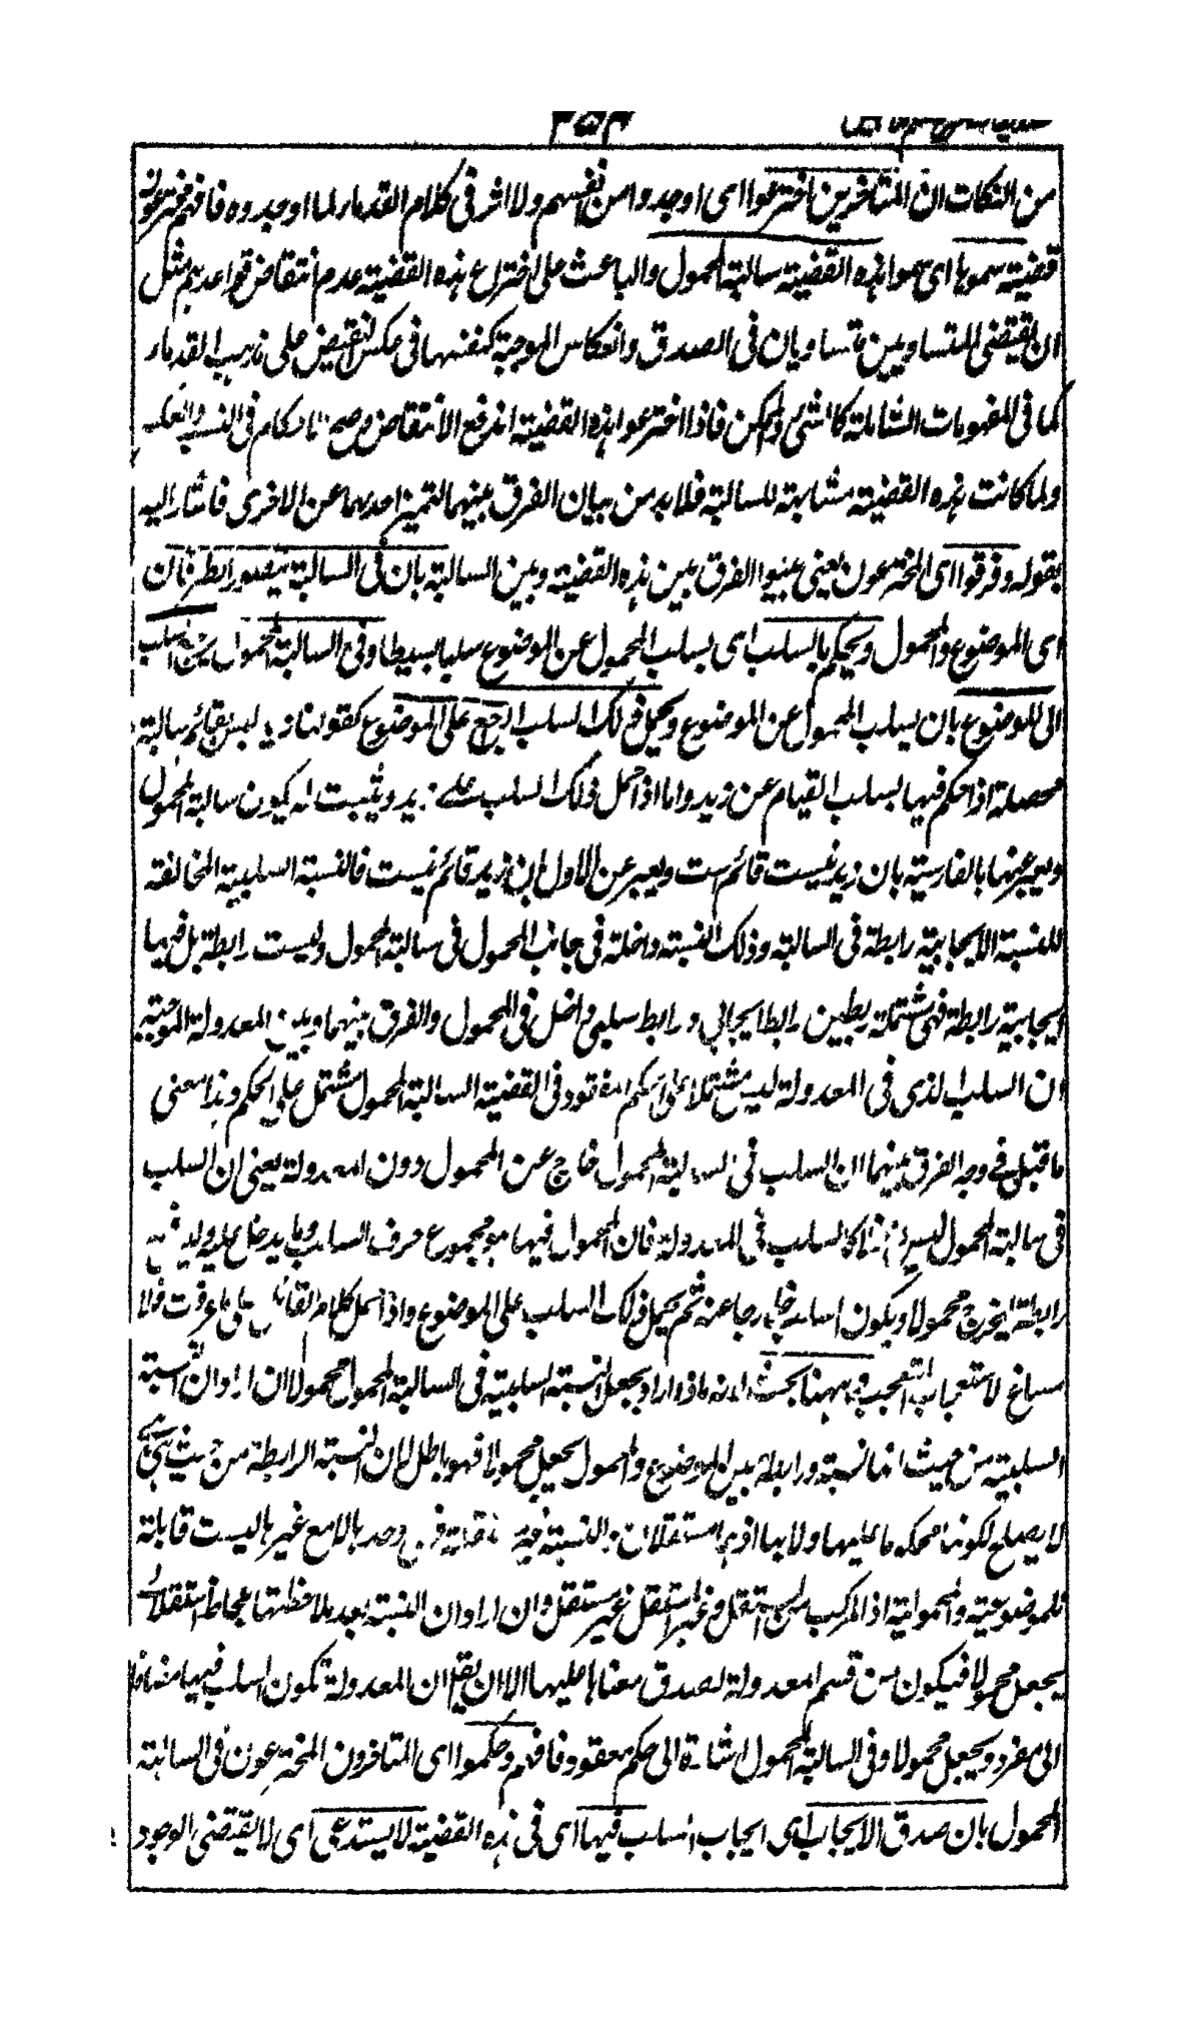 من النكات ان المتاخرين اخترعوا اى اوجدوا من انفسهم ولا اثر فى كلام القدماء لما اوجدوه فافهم فخترعوا
قضية سموها اى سموا هذه القضية سالبة المحمول والباعث على اختراع هذه القضية عدم انتقاض قواعدهم مثل
ان نقيضى المتساويين متساويان فى الصدق وانعكاس الموجبة كنفسها فى عكس النقيض على مذهب القدماء
كما فى المفهومات الشاملة كالشئ والممكن فاذا اخترعوا هذه القضية اندفع الانتقاض وصح الاحكام فى النسب والعكس
ولما كانت هذه القضية مشابهة للسالبة فلا بد من بيان الفرق بينهما لتميز احدهما عن الاخرى فاشار اليه
بقوله وفرقوا اى المخترعون يعنى بينوا الفرق بين هذه القضية وبين السالبة بان فى السالبة يتصور الطرفان
اى الموضوع والمحمول ويحكم بالسلب اى بسلب المحمول عن الموضوع سلبا بسيطا وفى السالبة المحمول يرجع السلب
الى الموضوع بان يسلب المحمول عن الموضوع ويحمل ذلك السلب الراجع على الموضوع كقولنا زيد ليس بقائم سالبة
محصلة اذا حكم فيها بسلب القيام عن زيد واما اذا حمل ذلك السلب على زيد ويثبت له يكون سالبة المحمول
ويعبر عنها بالفارسية بان زيد نيست قائم است ويعبر عن الاول بان زيد قائم نيست فالنسبة السلبية المخالفة
للنسبة الايجابية رابطة فى السالبة وذلك النسبة داخلة فى جانب المحمول فى سالبة المحمول وليست رابطة بل فيها
ايجابية رابطة فهى مشتملة ربطين رابط ايجابى ورابط سلبى داخل فى المحمول والفرق بينهما وبين المعدولة الموجبة
ان السلب الذى فى المعدولة ليس مشتملا على الحكم المعقود وفى القضية السالبة المحمول مشتمل على الحكم وهذا معنى
ما قيل فى وجه الفرق بينهما ان السلب فى السالبة المحمول خارج عن المحمول دون المعدولة يعنى ان السلب
فى سالبة المحمول ليس كالسلب فى المعدولة فان المحمول فيها هو مجموع حرف السلب وما يدخل عليه وليس
رابطة محمولا ويكون السلب خارجا عنه ثم يحمل ذلك السلب على الموضوع واذا حمل كلام القائل على ما عرفت فلا
مساغ لاستعجاب المتعجب ههنا بحث لانه ماذا اراد بجعل النسبة السلبية فى السالبة المحمول محمولا ان اراد ان النسبة
السلبية من حيث انها نسبة ورابطة بين الموضوع والمحمول يجعل محمولا فهو باطل لان النسبة الرابطة من حيث هى هى
لا يصلح لكونها محكوما عليها ولا بها اذ هما مستقلان والنسبة غير مستقلة وحدها لا مع غيرها ليست قابلة
للموضوعية والمحمولية اذ المركب من المستقل وغير المستقل غير مستقل وان اراد ان النسبة بعد ملاحظتها بلحاظ استقلالى
يجعل محمولا فيكون من قسم المعدولة لصدق معناها عليها الا ان يقال ان المعدولة تكون السلب فيها مضافا
الى مفرد ويجعل محمولا وفى السالبة المحمول اشارة الى حكم معقود فافهم وحكموا اى المتاخرون المخترعون فى السالبة
المحمول بان صدق الايجاب اى ايجاب السلب فيها اى فى هذه القضية لا يستدعى اى لا يقتضى الوجود